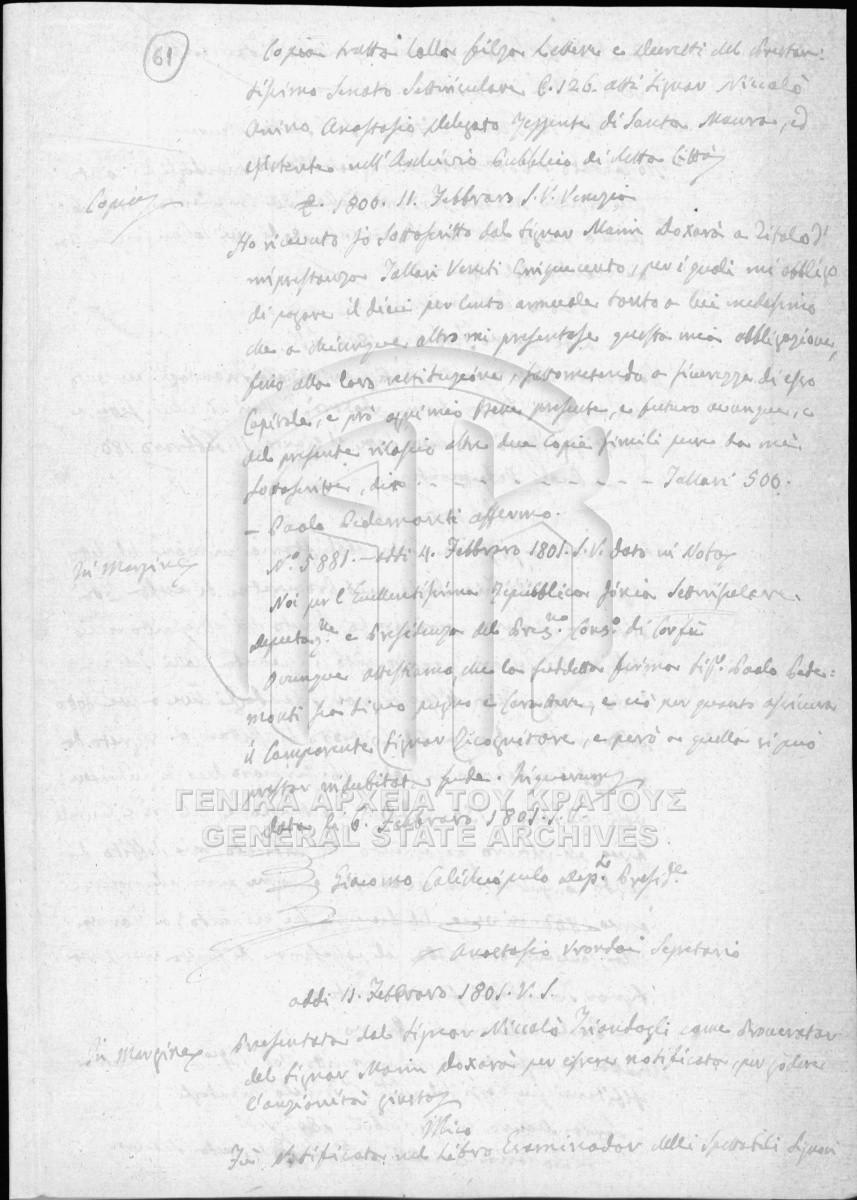 61
Copia tratta dalla filza Lettere e Decreti del Prestan:
tissimo Senato Settinsulare C. 126. atti Signor Niccolò
Anino Anastasio Delegato Reggente di Santa Maura, ed
esistente nell'Archivio Pubblico di detta Città
Copia
1800. 11. Febbraro S. V. Venezia
Ho ricevuto Jo Sottoscritto dal Signor Marin Doxarà a Titolo d'
imprestanza Tallari Veneti Cinquecento, per i quali mi obbligo
di pagare il dieci per Cento annuale tanto a lui medesimo
che a chiunque altro mi presentasse questa mia obbligazione,
fino alla loro restituzione, sottometendo a sicurezza di esso
Capitale, e prò ogni mio Bene presente, e futuro ovunque, e
del presente rilascio altre due Copie simili pure da me
sottoscritte, dico - - - - - - - - - Tallari 500.
- Paolo Pedemonti affermo.
In Margine
N.º 5881. - addi 4. Febbraro 1801. S. V. dato in Nota
Noi per l'Eccellentissima Repubblica Jonia Settinsulare.
e Presidenza del Cons.º di Corfù
Ovunque attestiamo, che la suddetta firma Sig.r Paolo Pede:
monti sia Suo pugno e Carattere, e ciò per quanto assicura
il Comparente Signor Ricognitore, e però a quella si può
prestar indubitata fede. In quorum
Data li 6. Febbraro 1801. S. V.
Giacomo Calichiopulo Presid.e
Anastasio Segretario
addi 11. Febbraro 1801. V. S.
In Margine
Presentata dal Signor Niccolò Triandafli come Procurator
del Signor Marin Doxarà per essere notificata, per godere
l'anzionità giusta
Mico
Fù Notificata nel Libro Esaminador delli Spettabili Signori
ΓΕΝΙΚΑ ΑΡΧΕΙΑ ΤΟΥ ΚΡΑΤΟΥΣ
GENERAL STATE ARCHIVES